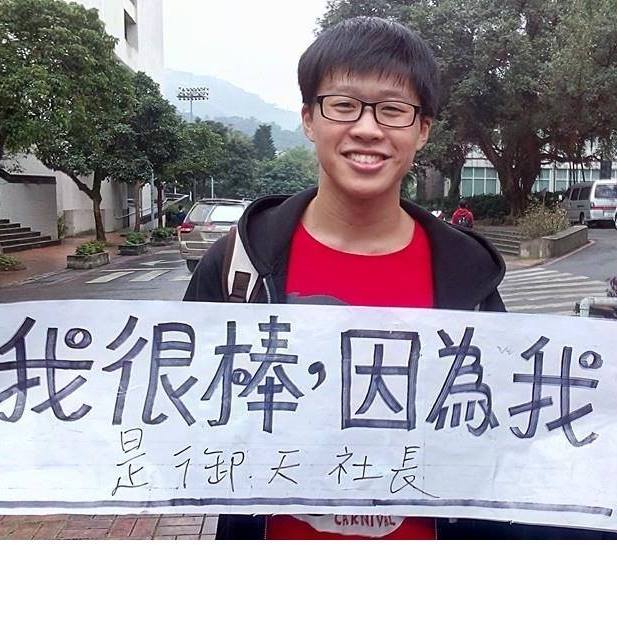 我很棒，因為我
是御天社長
CARNIVAL